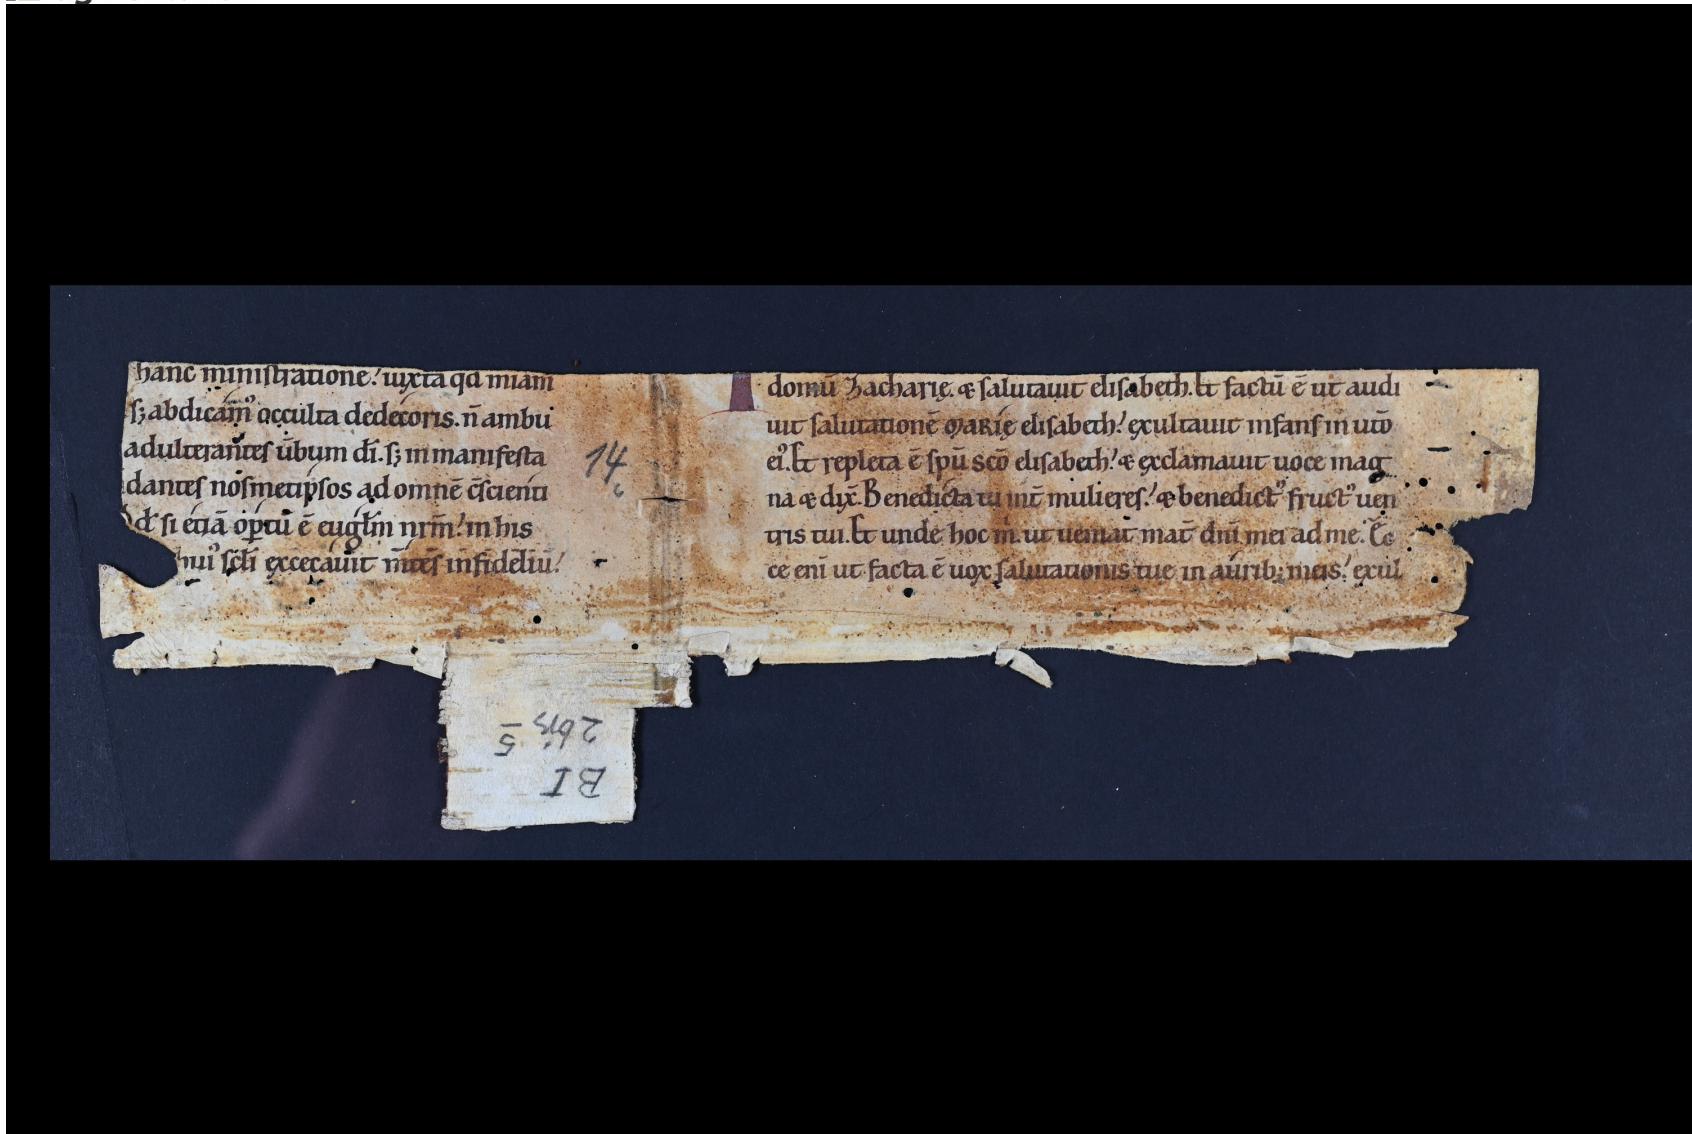 hanc ministratione᷎! iuxta qd miam
sꝫ abdicam᷒ occulta dedecoris. n̄ ambu
adulterantes ūbum dī. sꝫ in manifesta
dantes nosmetipsos ad omnē c̄scienti
d᷎ si etiā op̱tū ē eugłm nrm̄! in his
hui᷒ scłi excecauit m̄tes infideliū!
14
domū Zacharię. & salutauit elisabeth. Et factū ē ut audi
uit salutationē MARIę elisabeth! exultauit infans in utō
ei᷒. Et repleta ē spū scō elisabeth! & exclamauit uoce mag
na & dix̄. Benedicta tu int̄ mulieres! & benedict᷒ fruct᷒ uen
tris tui. Et unde hoc m̄. ut ueniat mat̄ dnī mei ad me. Ec
ce enī ut facta ē uox salutationis tue in auribꝫ meis! exul
BI
2 bis 5